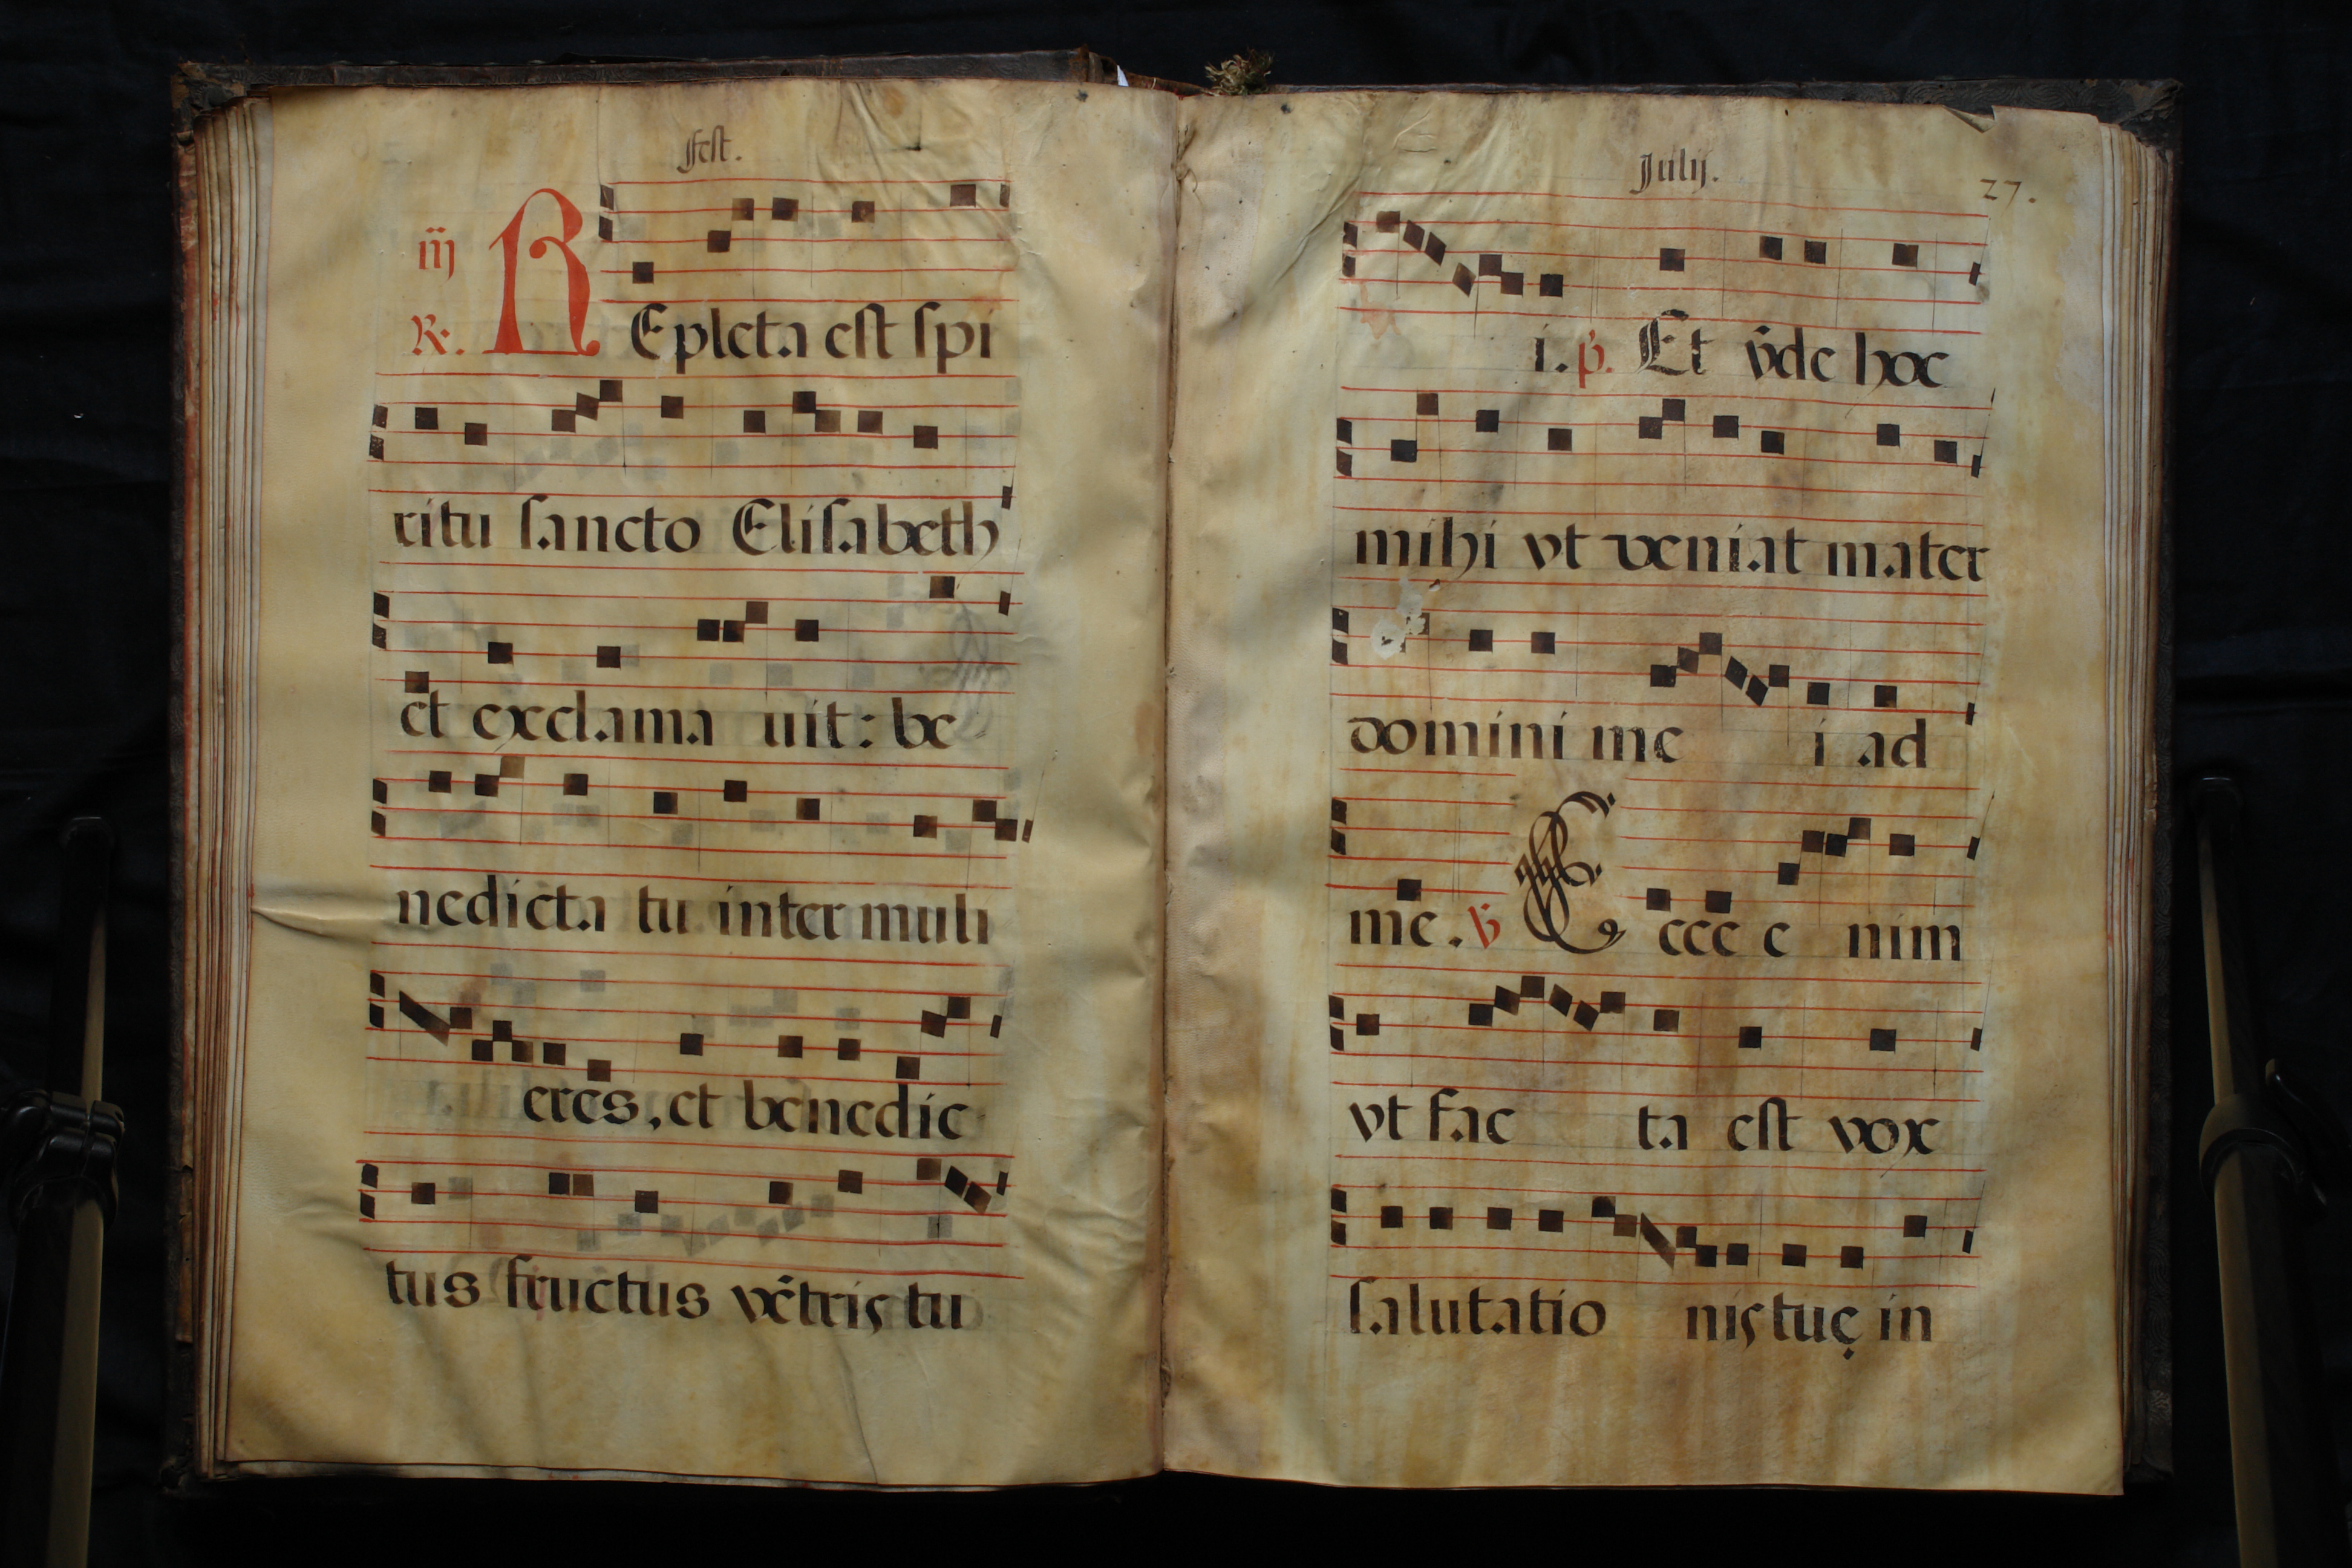 Fest.
iij
R.
REpleta est spi
ritu sancto Elisabeth
et exclama uit: be
nedicta tu inter muli
eres, et benedic
tus fructus vẽtris tu
Julij.
27.
i. p. Et vñde hoc
mihi vt veniat mater
domini me i ad
me. V Ecce e nim
vt fac ta est vox
salutatio nis tuę in